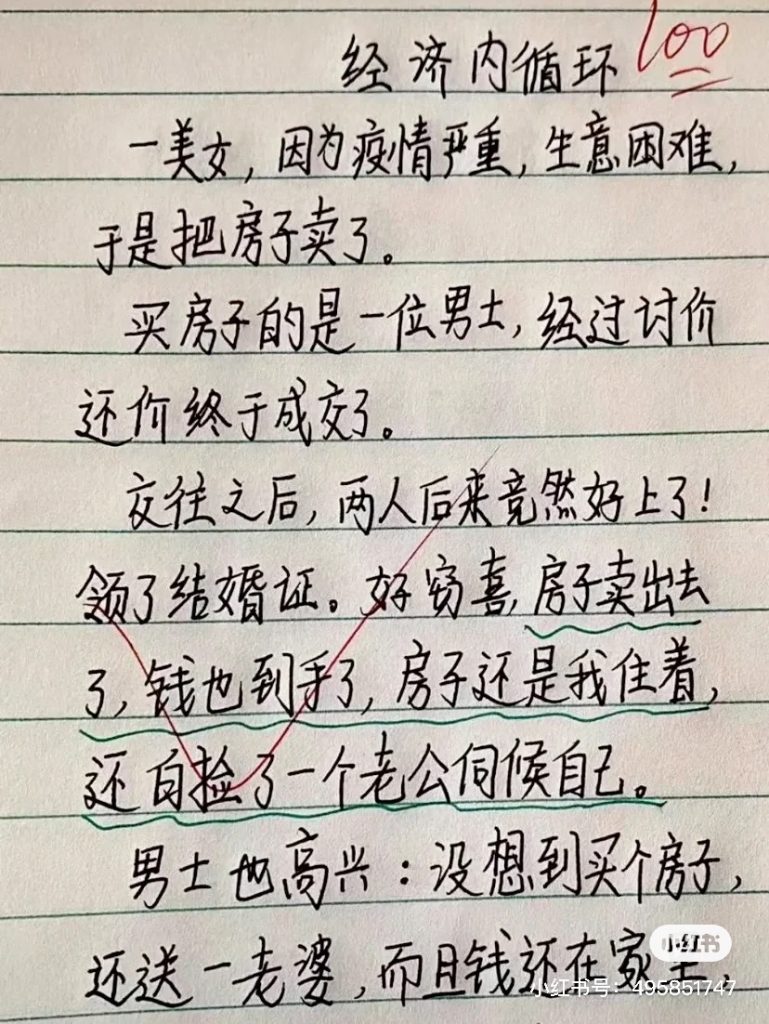 经济内循环 100
一美女，因为疫情严重，生意困难，
于是把房子卖了。
买房子的是一位男士，经过讨价
还价终于成交了。
交往之后，两人后来竟然好上了！
领了结婚证。好窃喜，房子卖出去
了，钱也到手了，房子还是我住着，
还白捡了一个老公伺候自己。
男士也高兴：没想到买个房子，
小红书
还送一老婆，而且钱还在家里，
小红书号：495851747